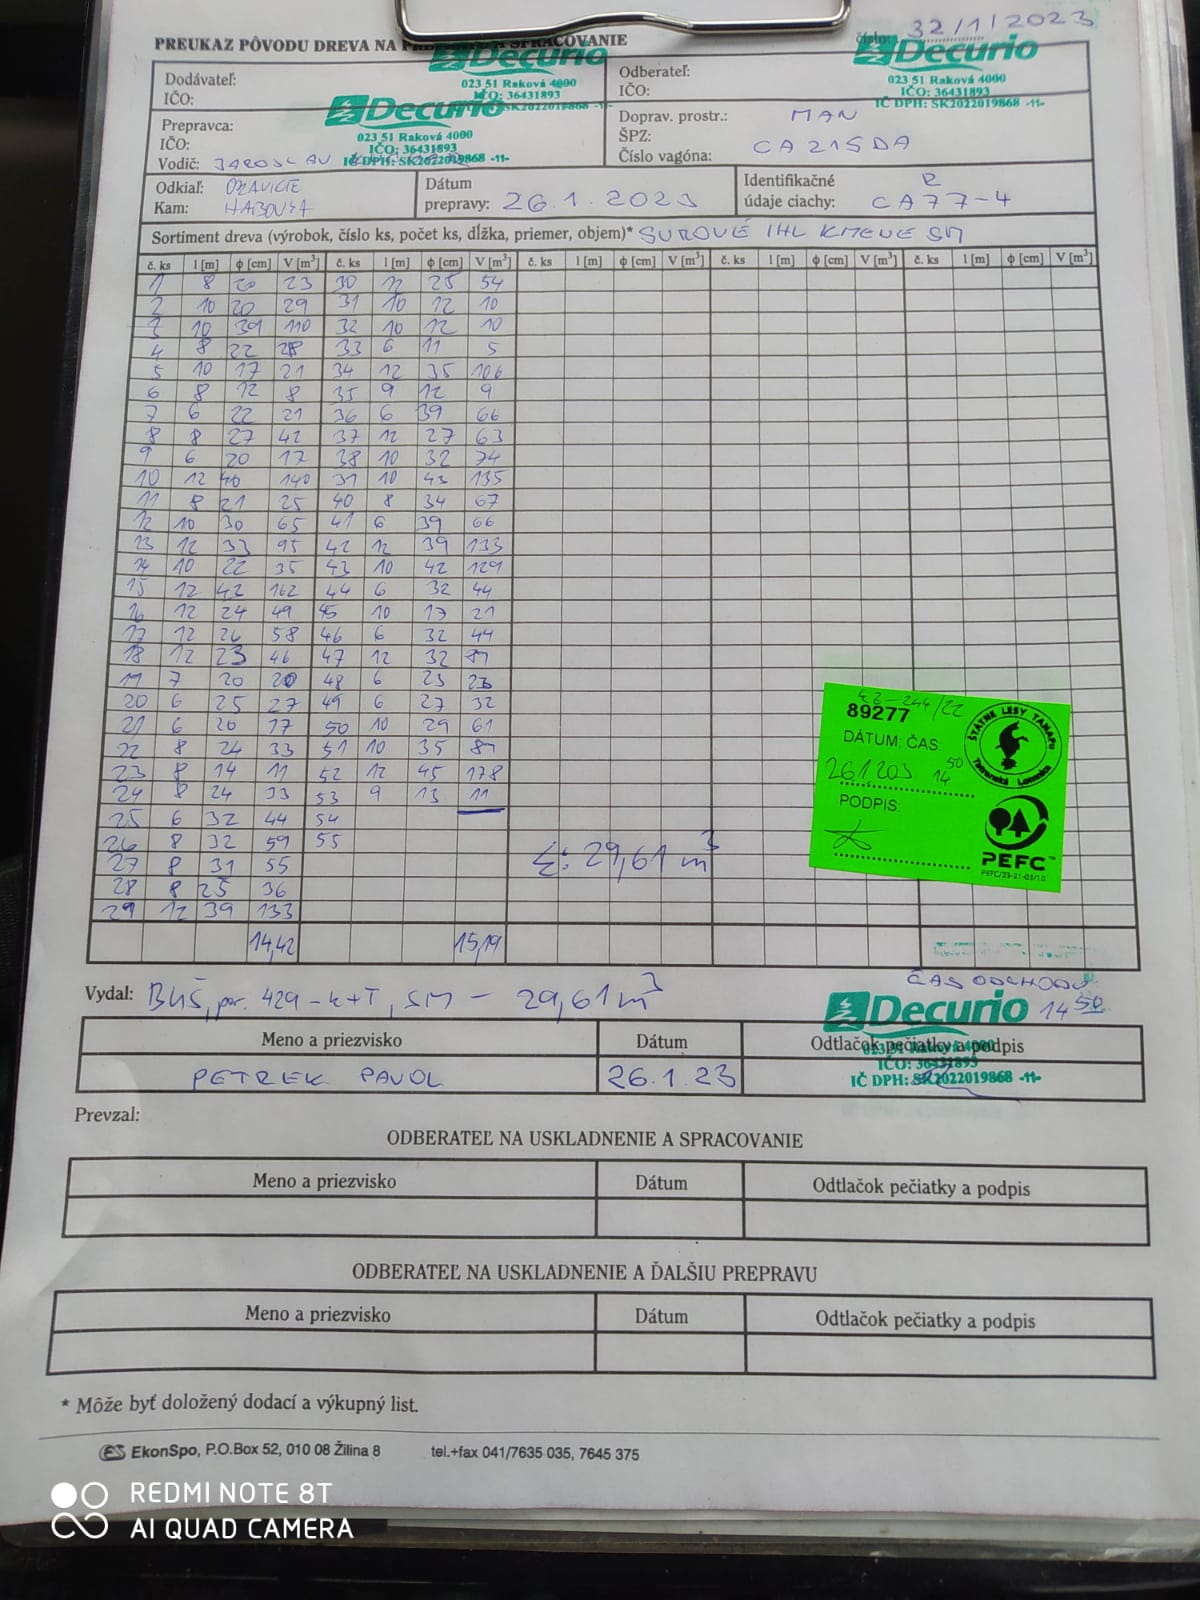 32/1/2023
PREUKAZ PÔVODU DREVA NA SPRACOVANIE číslo:
Decurio
023 51 Raková 4000
IČO: 36431893
IČ DPH: SK2022019868 -11-
Decurio
023 51 Raková 4000
IČO: 36431893
IČ DPH: SK2022019868 -11-
Decurio
023 51 Raková 4000
IČO: 36431893
IČ DPH: SK2022019868 -11-
Dodávateľ:
IČO:
Odberateľ:
IČO:
Prepravca:
IČO:
Vodič: JAROSLAV
Doprav. prostr.: MAN
ŠPZ:
Číslo vagóna: CA215DA
Odkiaľ: ORAVICE
Kam: HABOVKA
Dátum
prepravy: 26.1.2023
Identifikačné R
údaje ciachy: CA77-4
Sortiment dreva (výrobok, číslo ks, počet ks, dĺžka, priemer, objem)* SUROVÉ IHL KMENE SM
č. ks l [m] ϕ [cm] V [m³] č. ks l [m] ϕ [cm] V [m³] č. ks l [m] ϕ [cm] V [m³] č. ks l [m] ϕ [cm] V [m³] č. ks l [m] ϕ [cm] V [m³]
1 8 20 23 30 12 25 54
2 10 20 29 31 10 12 10
3 10 39 110 32 10 12 10
4 8 22 28 33 6 11 5
5 10 17 21 34 12 35 106
6 8 12 8 35 9 12 9
7 6 22 21 36 6 39 66
8 8 27 42 37 12 27 63
9 6 20 17 38 10 32 74
10 12 40 140 39 10 43 135
11 8 21 25 40 8 34 67
12 10 30 65 41 6 39 66
13 12 33 95 42 12 39 133
14 10 22 35 43 10 42 129
15 12 43 162 44 6 32 44
16 12 24 49 45 10 17 21
17 12 26 58 46 6 32 44
18 12 23 46 47 12 32 89
19 7 20 20 48 6 23 23
20 6 25 27 49 6 27 32
21 6 20 17 50 10 29 61
22 8 24 33 51 10 35 89
23 8 14 11 52 12 45 178
24 8 24 33 53 9 13 11
25 6 32 44 54
26 8 32 59 55
27 8 31 55
28 8 25 36
29 12 39 133
Σ: 29,61 m³
14,42 15,19
42-244/22
89277
DÁTUM; ČAS:
26.1.203 14 50
PODPIS:
ŠTÁTNE LESY TANAPu
Tatranská Lomnica
PEFC™
PEFC/23-21-03/10
ČAS ODCHODU
14 50
Vydal: BUŠ, por. 429-k+T, SM - 29,61 m³
Decurio
023 51 Raková 4000
IČO: 36431893
IČ DPH: SK2022019868 -11-
Meno a priezvisko Dátum Odtlačok pečiatky a podpis
PETREK PAVOL 26.1.23
Prevzal:
ODBERATEĽ NA USKLADNENIE A SPRACOVANIE
Meno a priezvisko Dátum Odtlačok pečiatky a podpis
ODBERATEĽ NA USKLADNENIE A ĎALŠIU PREPRAVU
Meno a priezvisko Dátum Odtlačok pečiatky a podpis
* Môže byť doložený dodací a výkupný list.
ES EkonSpo, P.O.Box 52, 010 08 Žilina 8 tel.+fax 041/7635 035, 7645 375
REDMI NOTE 8T
AI QUAD CAMERA